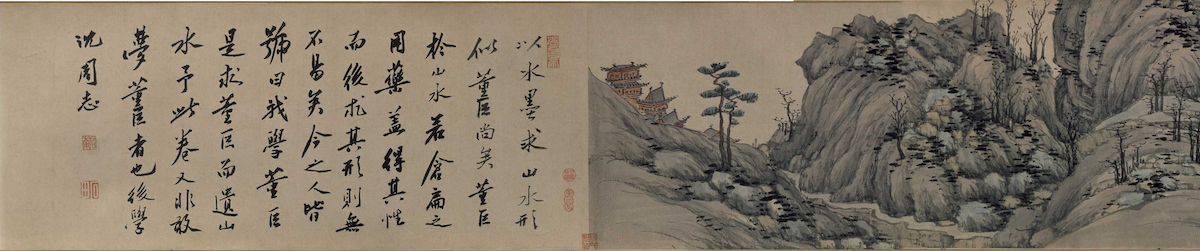 以水墨求山水形
似董巨尚矣董巨
於山水若倉扁之
用藥蓋得其性
而後求其形則無
不易矣今之人皆
號曰我學董巨
是求董巨而遺山
水予此卷又非敢
夢董巨者也後學
沈周志